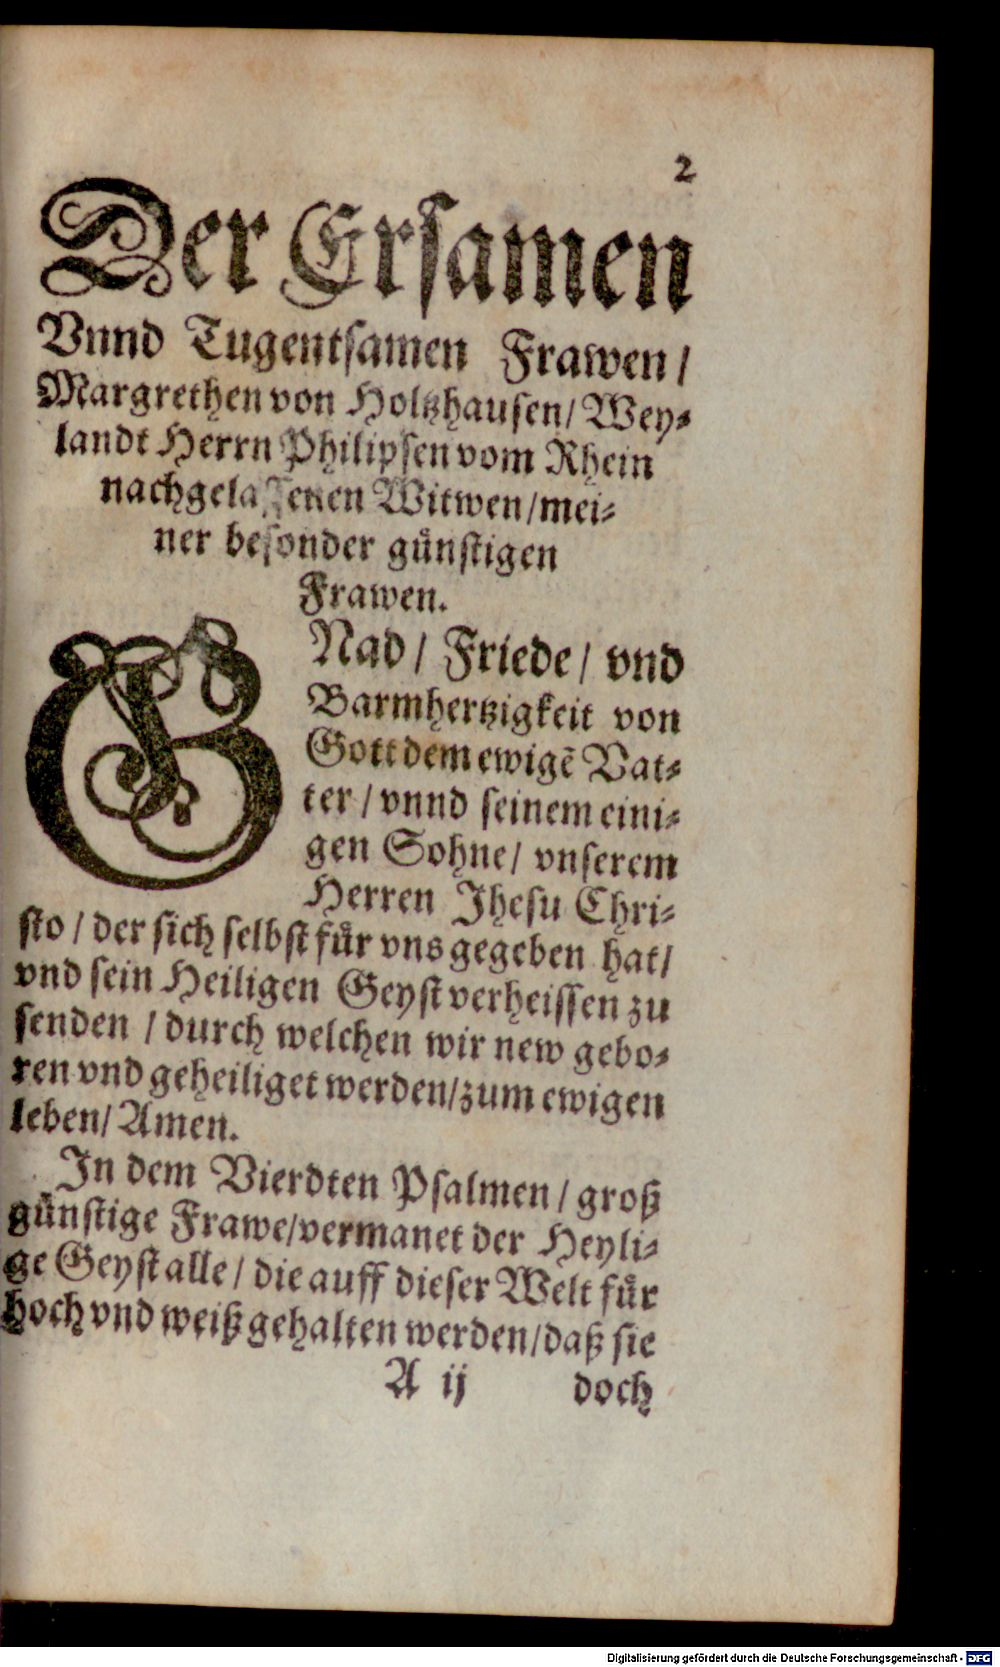 2
Der Ersamen
Vnnd Tugentsamen Frawen /
Margrethen von Holtzhausen / Wey⸗
landt Herrn Philipsen vom Rhein
nachgelassenen Witwen / mei⸗
ner besonder gůnstigen
Frawen.
GNad / Friede / vnd
Barmhertzigkeit von
Gott dem ewigẽ Vat⸗
ter / vnnd seinem eini⸗
gen Sohne / vnserem
Herren Jhesu Chri⸗
sto / der sich selbst fůr vns gegeben hat /
vnd sein Heiligen Geyst verheissen zu
senden / durch welchen wir new gebo⸗
ren vnd geheiliget werden / zum ewigen
leben / Amen.
In dem Vierdten Psalmen / groß
gůnstige Frawe / vermanet der Heyli⸗
ge Geyst alle / die auff dieser Welt fůr
hoch vnd weiß gehalten werden / daß sie
A ij doch
Digitalisierung gefördert durch die Deutsche Forschungsgemeinschaft - DFG